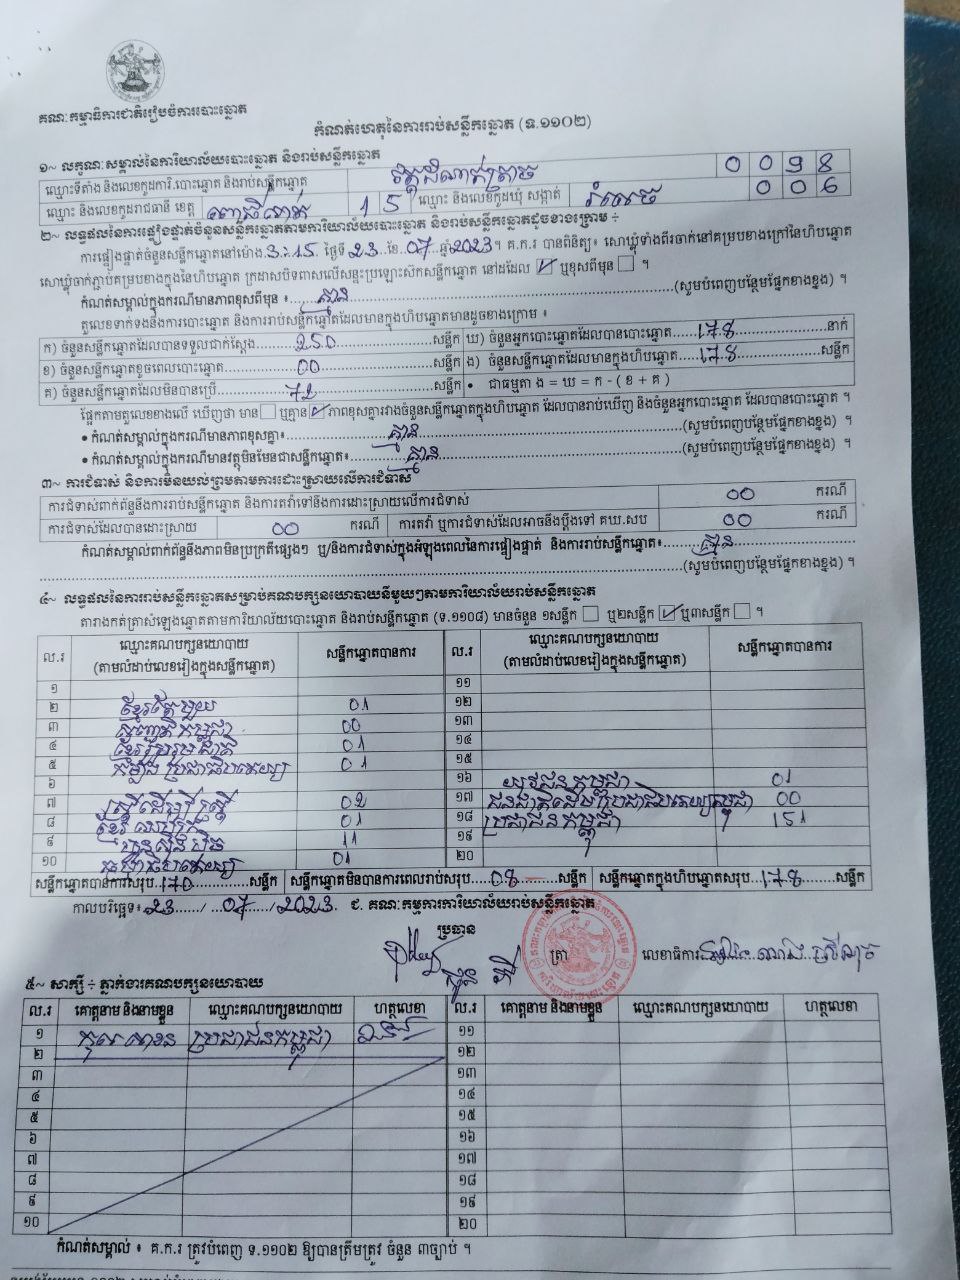 គណៈកម្មាធិការជាតិរៀបចំការបោះឆ្នោត
កំណត់ហេតុនៃការរាប់សន្លឹកឆ្នោត (ទ.១១០២)
១~ លក្ខណៈសម្គាល់នៃការិយាល័យបោះឆ្នោត និងរាប់សន្លឹកឆ្នោត
ឈ្មោះទីតាំង និងលេខកូដការិ.បោះឆ្នោត និងរាប់សន្លឹកឆ្នោត 0 0 9 8
ឈ្មោះ និងលេខកូដរាជធានី ខេត្ត ពោធិ៍សាត់ 1 5 ឈ្មោះ និងលេខកូដឃុំ សង្កាត់ រំលេច 0 0 6
២~ លទ្ធផលនៃការផ្ទៀងផ្ទាត់ចំនួនសន្លឹកឆ្នោតតាមការិយាល័យបោះឆ្នោត និងរាប់សន្លឹកឆ្នោតដូចខាងក្រោម ÷
ការផ្ទៀងផ្ទាត់ចំនួនសន្លឹកឆ្នោតនៅម៉ោង 3:15 ថ្ងៃទី 23 ខែ 07 ឆ្នាំ 2023។ គ.ក.រ បានពិនិត្យ៖ សោឃ្លុំទាំងពីរចាក់នៅគម្របខាងក្រៅនៃហិបឆ្នោត
សោឃ្លុំចាក់ភ្ជាប់គម្របខាងក្នុងនៃហិបឆ្នោត ក្រដាសបិទពាសលើសន្ទះប្រឡោះស៊កសន្លឹកឆ្នោត នៅដដែល ☑ ឬខុសពីមុន ☐ ។
កំណត់សម្គាល់ក្នុងករណីមានភាពខុសពីមុន ៖ គ្មាន (សូមបំពេញបន្ថែមផ្នែកខាងខ្នង) ។
តួលេខទាក់ទងនឹងការបោះឆ្នោត និងការរាប់សន្លឹកឆ្នោតដែលមានក្នុងហិបឆ្នោតមានដូចខាងក្រោម ៖
ក) ចំនួនសន្លឹកឆ្នោតដែលបានទទួលជាក់ស្តែង 250 សន្លឹក ឃ) ចំនួនអ្នកបោះឆ្នោតដែលបានបោះឆ្នោត 178 នាក់
ខ) ចំនួនសន្លឹកឆ្នោតខូចពេលបោះឆ្នោត 00 សន្លឹក ង) ចំនួនសន្លឹកឆ្នោតដែលមានក្នុងហិបឆ្នោត 178 សន្លឹក
គ) ចំនួនសន្លឹកឆ្នោតដែលមិនបានប្រើ 72 សន្លឹក • ជាធម្មតា ង = ឃ = ក - ( ខ + គ )
ផ្អែកតាមតួលេខខាងលើ ឃើញថា មាន ☐ ឬគ្មាន ☑ ភាពខុសគ្នារវាងចំនួនសន្លឹកឆ្នោតក្នុងហិបឆ្នោត ដែលបានរាប់ឃើញ និងចំនួនអ្នកបោះឆ្នោត ដែលបានបោះឆ្នោត ។
• កំណត់សម្គាល់ក្នុងករណីមានភាពខុសគ្នា៖ គ្មាន (សូមបំពេញបន្ថែមផ្នែកខាងខ្នង) ។
• កំណត់សម្គាល់ក្នុងករណីមានវត្ថុមិនមែនជាសន្លឹកឆ្នោត៖ គ្មាន (សូមបំពេញបន្ថែមផ្នែកខាងខ្នង) ។
៣~ ការជំទាស់ និងការមិនយល់ព្រមតាមការដោះស្រាយលើការជំទាស់
ការជំទាស់ពាក់ព័ន្ធនឹងការរាប់សន្លឹកឆ្នោត និងការតវ៉ាទៅនឹងការដោះស្រាយលើការជំទាស់ 00 ករណី
ការជំទាស់ដែលបានដោះស្រាយ 00 ករណី ការតវ៉ា ឬការជំទាស់ដែលអាចនឹងប្តឹងទៅ គឃ.សប 00 ករណី
កំណត់សម្គាល់ពាក់ព័ន្ធនឹងភាពមិនប្រក្រតីផ្សេងៗ ឬ/និងការជំទាស់ក្នុងអំឡុងពេលនៃការផ្ទៀងផ្ទាត់ និងការរាប់សន្លឹកឆ្នោត៖ គ្មាន
(សូមបំពេញបន្ថែមផ្នែកខាងខ្នង) ។
៤~ លទ្ធផលនៃការរាប់សន្លឹកឆ្នោតសម្រាប់គណបក្សនយោបាយនីមួយៗតាមការិយាល័យរាប់សន្លឹកឆ្នោត
តារាងកត់ត្រាសំឡេងឆ្នោតតាមការិយាល័យបោះឆ្នោត និងរាប់សន្លឹកឆ្នោត (ទ.១១០៨) មានចំនួន ១សន្លឹក ☐ ឬ២សន្លឹក ☑ ឬ៣សន្លឹក ☐ ។
ល.រ ឈ្មោះគណបក្សនយោបាយ សន្លឹកឆ្នោតបានការ ល.រ ឈ្មោះគណបក្សនយោបាយ សន្លឹកឆ្នោតបានការ
(តាមលំដាប់លេខរៀងក្នុងសន្លឹកឆ្នោត) (តាមលំដាប់លេខរៀងក្នុងសន្លឹកឆ្នោត)
១ ១១
២ ខ្មែរតែមួយ 01 ១២
៣ កម្ពុជា 00 ១៣
៤ ខ្មែររួបរួមជាតិ 01 ១៤
៥ កម្លាំងប្រជាធិបតេយ្យ 01 ១៥
៦ ១៦ យុវជនកម្ពុជា 01
៧ ស្ត្រីដើម្បីស្ត្រី 02 ១៧ ជនជាតិដើមប្រជាធិបតេយ្យកម្ពុជា 00
៨ ខ្មែរ 01 ១៨ ប្រជាជនកម្ពុជា 151
៩ 11 ១៩
១០ 01 ២០
សន្លឹកឆ្នោតបានការសរុប 170 សន្លឹក សន្លឹកឆ្នោតមិនបានការពេលរាប់សរុប 08 សន្លឹក សន្លឹកឆ្នោតក្នុងហិបឆ្នោតសរុប 178 សន្លឹក
កាលបរិច្ឆេទ៖ 23 / 07 / 2023 ជ. គណៈកម្មការការិយាល័យរាប់សន្លឹកឆ្នោត
ប្រធាន ត្រា លេខាធិការ
៥~ សាក្សី ÷ ភ្នាក់ងារគណបក្សនយោបាយ
ល.រ គោត្តនាម និងនាមខ្លួន ឈ្មោះគណបក្សនយោបាយ ហត្ថលេខា ល.រ គោត្តនាម និងនាមខ្លួន ឈ្មោះគណបក្សនយោបាយ ហត្ថលេខា
១ ប្រជាជនកម្ពុជា ១១
២ ១២
៣ ១៣
៤ ១៤
៥ ១៥
៦ ១៦
៧ ១៧
៨ ១៨
៩ ១៩
១០ ២០
កំណត់សម្គាល់ ៖ គ.ក.រ ត្រូវបំពេញ ទ.១១០២ ឱ្យបានត្រឹមត្រូវ ចំនួន ៣ច្បាប់ ។